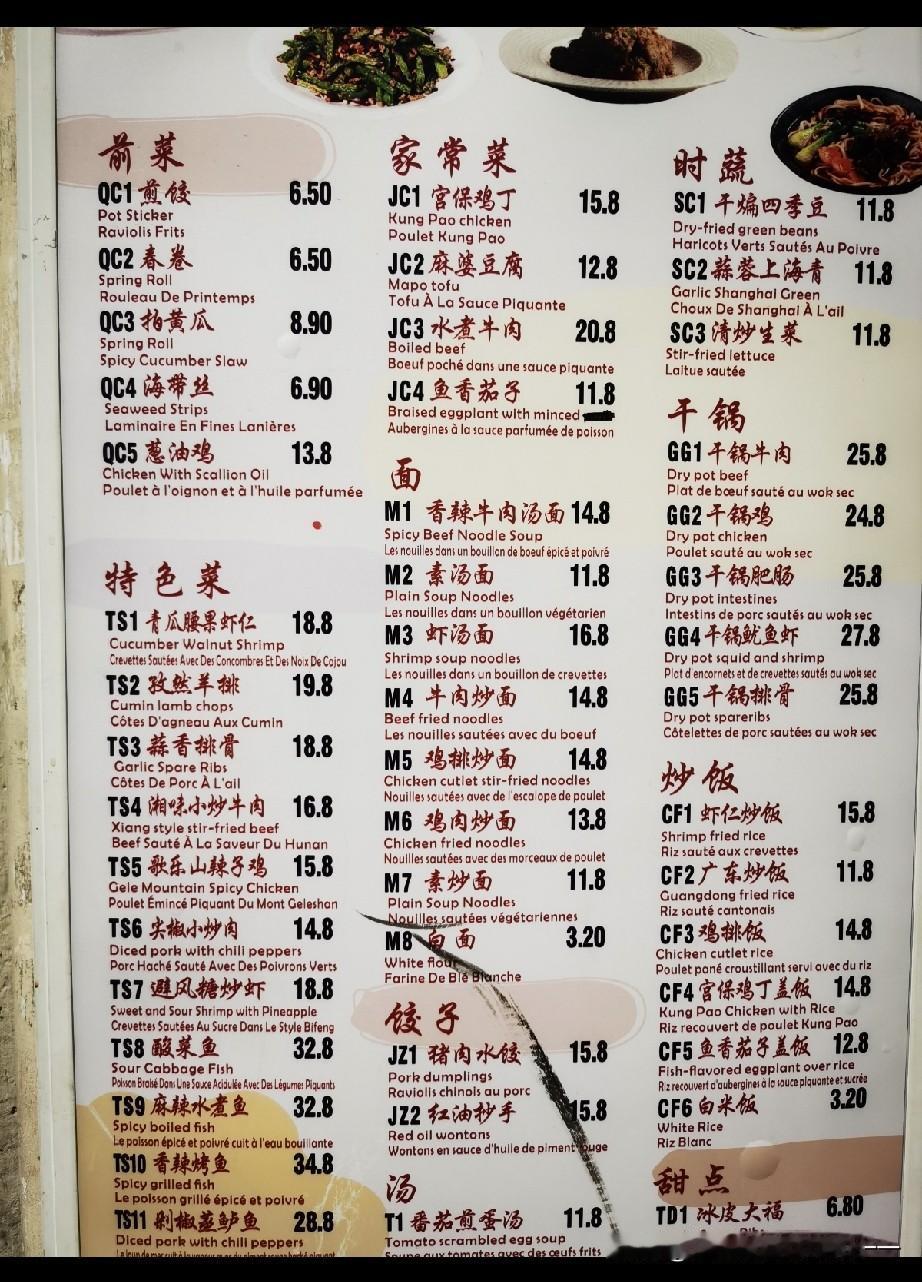 前菜
QC1 煎饺 6.50
Pot Sticker
Raviolis Frits
QC2 春卷 6.50
Spring Roll
Rouleau De Printemps
QC3 拍黄瓜 8.90
Spring Roll
Spicy Cucumber Slaw
QC4 海带丝 6.90
Seaweed Strips
Laminaire En Fines Lanières
QC5 葱油鸡 13.8
Chicken With Scallion Oil
Poulet à l'oignon et à l'huile parfumée
特色菜
TS1 青瓜腰果虾仁 18.8
Cucumber Walnut Shrimp
Crevettes Sautées Avec Des Concombres Et Des Noix De Cajou
TS2 孜然羊排 19.8
Cumin lamb chops
Côtes D'agneau Aux Cumin
TS3 蒜香排骨 18.8
Garlic Spare Ribs
Côtes De Porc À L'ail
TS4 湘味小炒牛肉 16.8
Xiang style stir-fried beef
Beef Sauté À La Saveur Du Hunan
TS5 歌乐山辣子鸡 15.8
Gele Mountain Spicy Chicken
Poulet Émincé Piquant Du Mont Geleshan
TS6 尖椒小炒肉 14.8
Diced pork with chili peppers
Porc Haché Sauté Avec Des Poivrons Verts
TS7 避风糖炒虾 18.8
Sweet and Sour Shrimp with Pineapple
Crevettes Sautées Au Sucre Dans Le Style Bifeng
TS8 酸菜鱼 32.8
Sour Cabbage Fish
Poisson Braisé Dans Une Sauce Acidulée Avec Des Légumes Piquants
TS9 麻辣水煮鱼 32.8
Spicy boiled fish
Le poisson épicé et poivré cuit à l'eau bouillante
TS10 香辣烤鱼 34.8
Spicy grilled fish
Le poisson grillé épicé et poivré
TS11 剁椒蒸鲈鱼 28.8
Diced pork with chili peppers
家常菜
JC1 宫保鸡丁 15.8
Kung Pao chicken
Poulet Kung Pao
JC2 麻婆豆腐 12.8
Mapo tofu
Tofu À La Sauce Piquante
JC3 水煮牛肉 20.8
Boiled beef
Boeuf poché dans une sauce piquante
JC4 鱼香茄子 11.8
Braised eggplant with minced
Aubergines à la sauce parfumée de poisson
面
M1 香辣牛肉汤面 14.8
Spicy Beef Noodle Soup
Les nouilles dans un bouillon de boeuf épicé et poivré
M2 素汤面 11.8
Plain Soup Noodles
Les nouilles dans un bouillon végétarien
M3 虾汤面 16.8
Shrimp soup noodles
Les nouilles dans un bouillon de crevettes
M4 牛肉炒面 14.8
Beef fried noodles
Les nouilles sautées avec du boeuf
M5 鸡排炒面 14.8
Chicken cutlet stir-fried noodles
Nouilles sautées avec de l'escalope de poulet
M6 鸡肉炒面 13.8
Chicken fried noodles
Nouilles sautées avec des morceaux de poulet
M7 素炒面 11.8
Plain Soup Noodles
Nouilles sautées végétariennes
M8 白面 3.20
White flour
Farine De Blé Blanche
饺子
JZ1 猪肉水饺 15.8
Pork dumplings
Raviolis chinois au porc
JZ2 红油抄手 15.8
Red oil wontons
Wontons en sauce d'huile de piment rouge
汤
T1 番茄煎蛋汤 11.8
Tomato scrambled egg soup
Soupe aux tomates avec des œufs frits
时蔬
SC1 干煸四季豆 11.8
Dry-fried green beans
Haricots Verts Sautés Au Poivre
SC2 蒜蓉上海青 11.8
Garlic Shanghai Green
Choux De Shanghai À L'ail
SC3 清炒生菜 11.8
Stir-fried lettuce
Laitue sautée
干锅
GG1 干锅牛肉 25.8
Dry pot beef
Plat de bœuf sauté au wok sec
GG2 干锅鸡 24.8
Dry pot chicken
Poulet sauté au wok sec
GG3 干锅肥肠 25.8
Dry pot intestines
Intestins de porc sautés au wok sec
GG4 干锅鱿鱼虾 27.8
Dry pot squid and shrimp
Plat d'encornets et de crevettes sautés au wok sec
GG5 干锅排骨 25.8
Dry pot spareribs
Côtelettes de porc sautées au wok sec
炒饭
CF1 虾仁炒饭 15.8
Shrimp fried rice
Riz sauté aux crevettes
CF2 广东炒饭 11.8
Guangdong fried rice
Riz sauté cantonais
CF3 鸡排饭 14.8
Chicken cutlet rice
Poulet pané croustillant servi avec du riz
CF4 宫保鸡丁盖饭 14.8
Kung Pao Chicken with Rice
Riz recouvert de poulet Kung Pao
CF5 鱼香茄子盖饭 12.8
Fish-flavored eggplant over rice
Riz recouvert d'aubergines à la sauce piquante et sucrée
CF6 白米饭 3.20
White Rice
Riz Blanc
甜点
TD1 冰皮大福 6.80